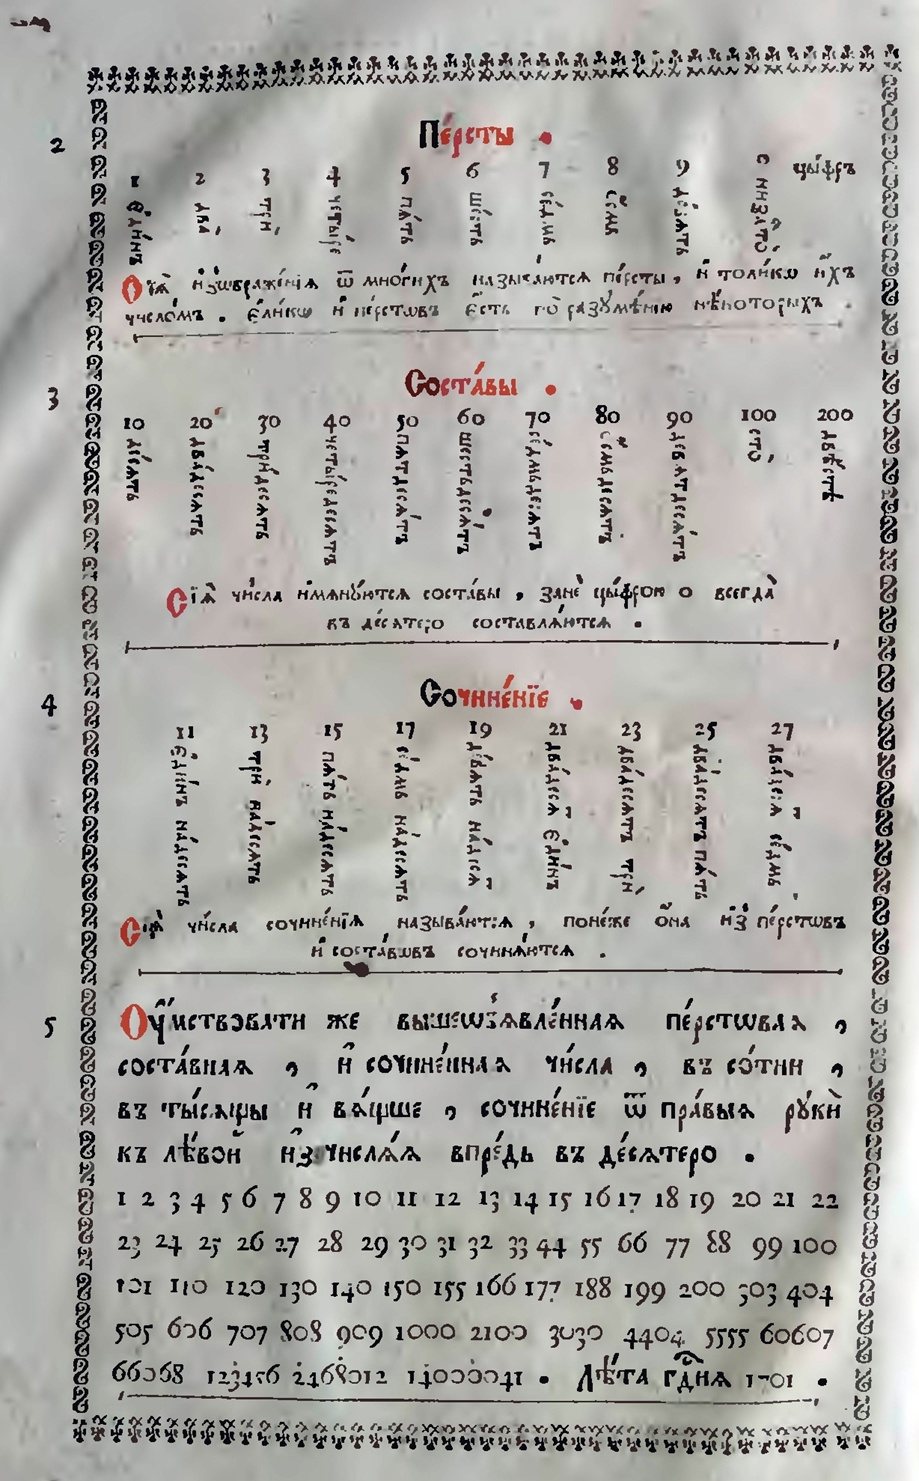 2
Пе́рсты .
1 2 3 4 5 6 7 8 9 0 цы́фръ
є҆ди́нъ два̀ трѝ четы́ре пѧ́ть ше́сть се́дмь ѻ҆́смь де́вѧть низа́що
Сїѧ̑ и҆з̾ѡбраже́нїѧ ѿ мно́гихъ называ́ютсѧ пе́рсты , и҆ толи́кѡ и҆́хъ
число́мъ . є҆ли́кѡ и҆ пе́рстѡвъ є҆́сть по разꙋмѣ́нїю нѣ́которыхъ .
3
Соста́вы .
10 20 30 40 50 60 70 80 90 100 200
де́сѧть два́десѧть три́десѧть четы́редесѧтъ пѧтьдесѧ́тъ шестьдесѧ́тъ се́дмьдесѧтъ ѻ҆́смьдесѧтъ девѧтдесѧ́тъ сто̀ двѣ́стѣ
Сїѧ̑ чи́сла и҆мѧнꙋ́ютсѧ соста́вы , занѐ цы́фрою 0 всегда̀
въ де́сѧтеро составлѧ́ютсѧ .
4
Сочине́нїе .
11 13 15 17 19 21 23 25 27
є҆ди́нъ на́десѧть трѝ на́десѧть пѧ́ть на́десѧть се́дмь на́десѧть де́вѧть на́десѧ два́десѧ є҆ди́нъ два́десѧтъ трѝ два́десѧтъ пѧ́ть два́десѧ се́дмь
Сїѧ̑ чи́сла сочине́нїѧ называ́ютсѧ , поне́же ѻ҆на̀ и҆з̾ пе́рстѡвъ
и҆ соста́вѡвъ сочинѧ́ютсѧ .
5
Оу҆́мствовати же вышеѡз̾ѧвле́ннаѧ пе́рстѡваѧ ,
соста́внаѧ , и҆ сочине́ннаѧ чи́сла , въ со́тни ,
въ ты́сѧщы и҆ вѧ́щше , сочине́нїе ѿ пра́выѧ рꙋкѝ
къ лѣ́вой и҆з̾числѧ́ѧ впре́дь въ де́сѧтеро .
1 2 3 4 5 6 7 8 9 10 11 12 13 14 15 16 17 18 19 20 21 22
23 24 25 26 27 28 29 30 31 32 33 44 55 66 77 88 99 100
101 110 120 130 140 150 155 166 177 188 199 200 303 404
505 606 707 808 909 1000 2100 3030 4404 5555 60607
66068 123456 2468012 14000041 . Лѣ́та гд҇нѧ 1701 .